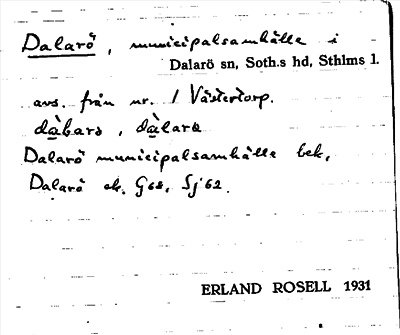 Dalarö, municipalsamhälle i
Dalarö sn, Soth.s hd, Sthlms l.
avs. från nr. 1 Västertorp.
dàlarö, dàlarö
Dalarö municipalsamhälle bek.
Dalarö ek. G68, Sj62.
ERLAND ROSELL 1931